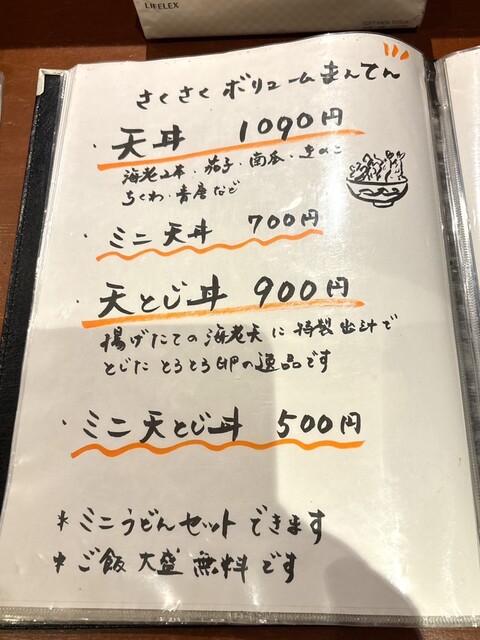 LIFELEX
さくさく ボリューム まんてん
・天丼 1090円
海老2本・茄子・南瓜・きのこ
ちくわ・青唐など
・ミニ天丼 700円
・天とじ丼 900円
揚げたての海老天に特製出汁で
とじた とろとろ卵の逸品です
・ミニ天とじ丼 500円
*ミニうどんセットできます
*ご飯大盛無料です